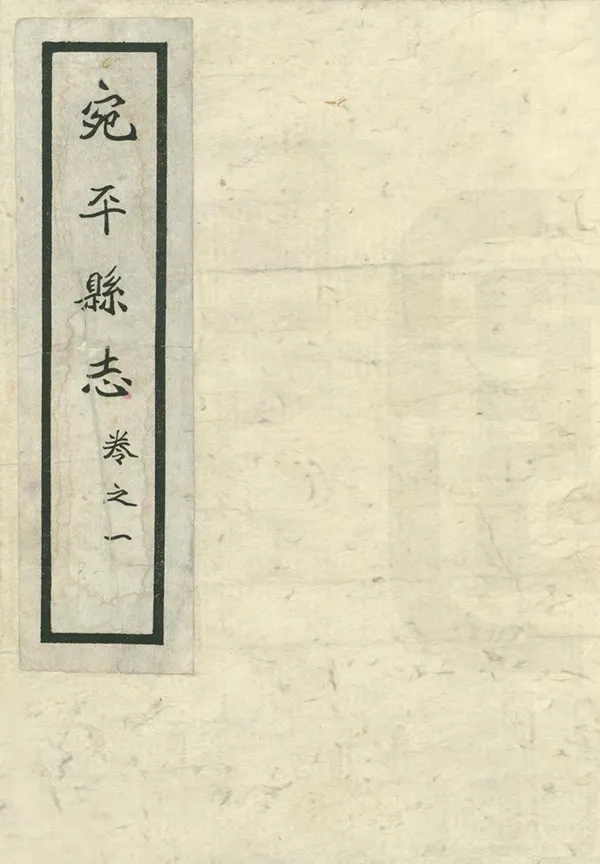 宛平縣志
卷之一